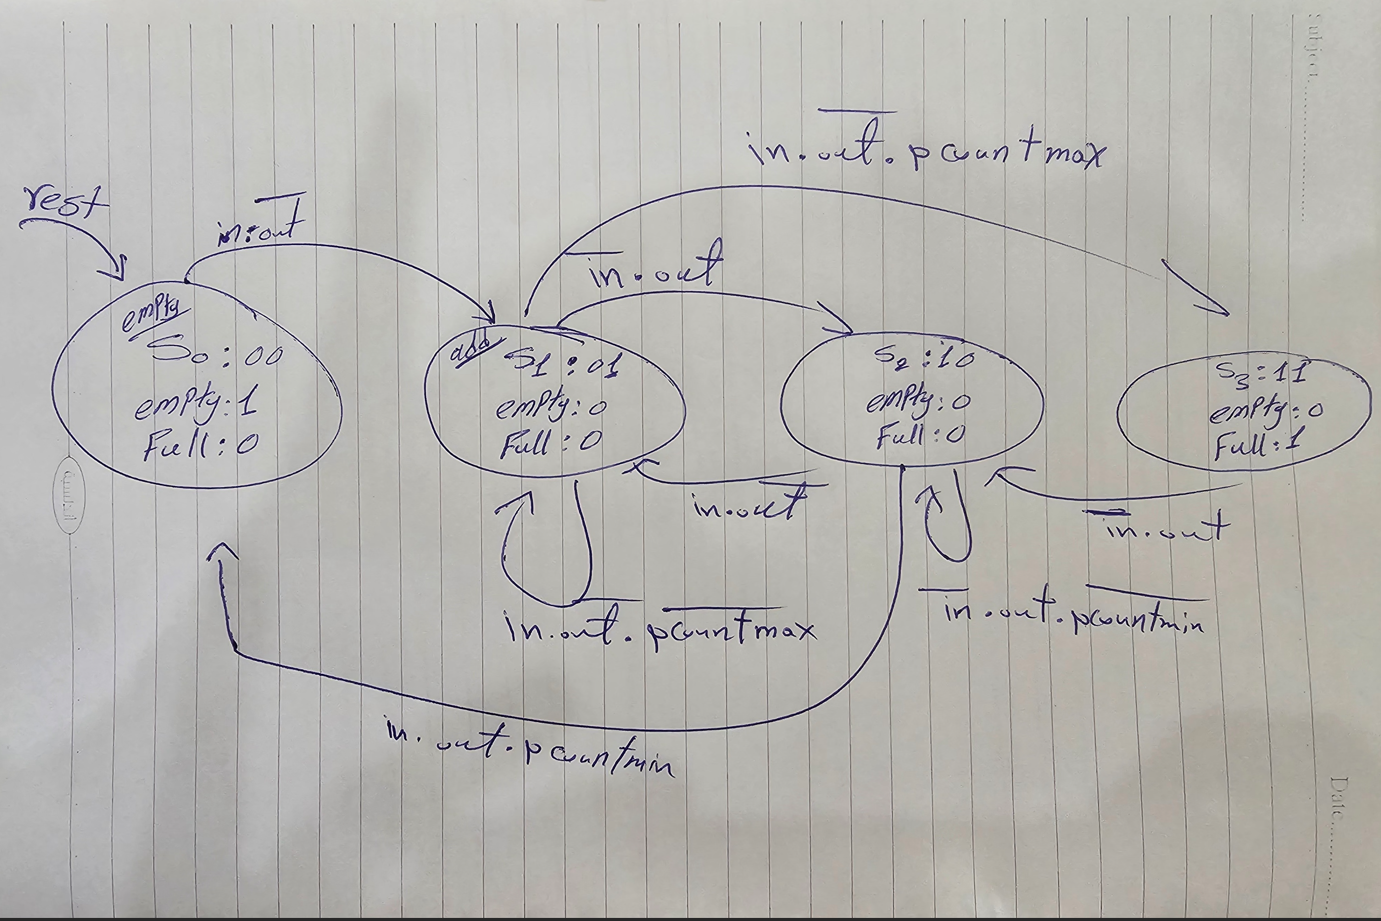 Subject:
in.o̅u̅t̅.pcountmax
rest
in.o̅u̅t̅
i̅n̅.out
empty
S0:00
empty:1
Full:0
add
S1:01
empty:0
Full:0
S2:10
empty:0
Full:0
S3:11
empty:0
Full:1
in.o̅u̅t̅
i̅n̅.out
in.o̅u̅t̅.p̅c̅o̅u̅n̅t̅m̅a̅x̅
i̅n̅.out.p̅c̅o̅u̅n̅t̅m̅i̅n̅
in.out.pcountmin
Date